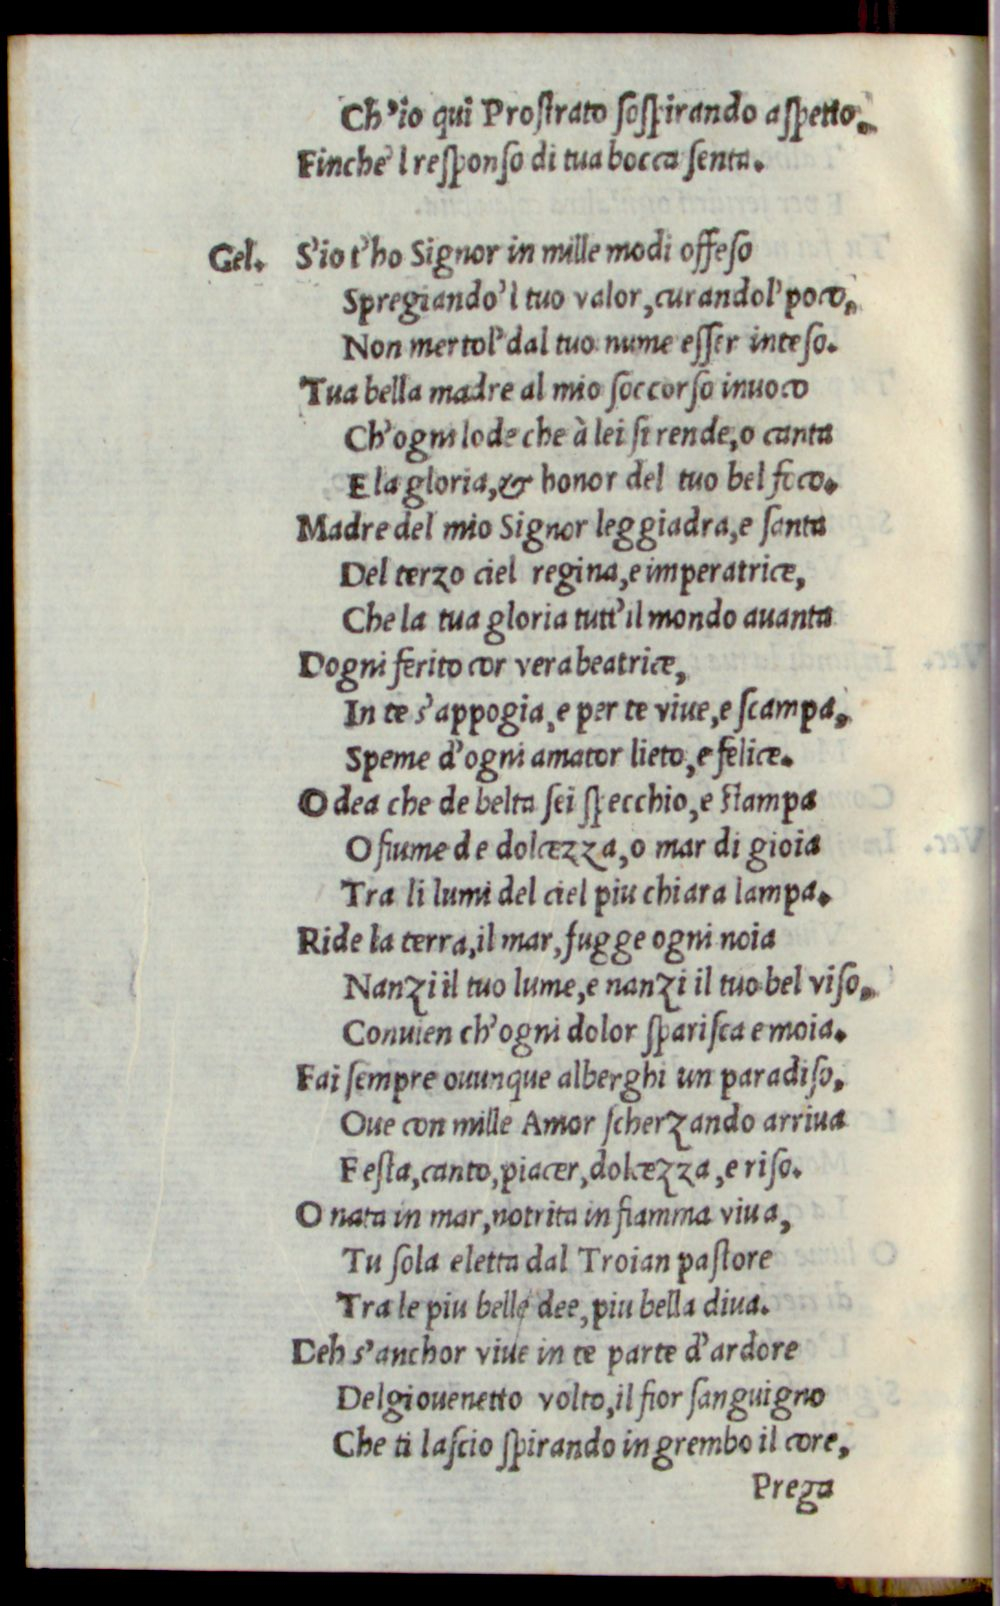 Ch'io qui Prostrato sospirando aspetto.
Finche'l responso di tua bocca senta.
Gel. S'io t'ho Signor in mille modi offeso
Spregiando'l tuo valor, curandol' poco,
Non mertol' dal tuo nume esser inteso.
Tua bella madre al mio soccorso inuoco
Ch'ogni lode che à lei si rende, o canta
E la gloria, & honor del tuo bel foco.
Madre del mio Signor leggiadra, e santa
Del terzo ciel regina, e imperatrice,
Che la tua gloria tutt'il mondo auanta
Dogni ferito cor vera beatrice,
In te s'appogia, e per te viue, e scampa,
Speme d'ogni amator lieto, e felice.
O dea che de belta sei specchio, e stampa
O fiume de dolcezza, o mar di gioia
Tra li lumi del ciel piu chiara lampa.
Ride la terra, il mar, fugge ogni noia
Nanzi il tuo lume, e nanzi il tuo bel viso,
Conuien ch'ogni dolor sparisca e moia.
Fai sempre ouunque alberghi un paradiso,
Oue con mille Amor scherzando arriua
Festa, canto, piacer, dolcezza, e riso.
O nata in mar, notrita in fiamma viua,
Tu sola eletta dal Troian pastore
Tra le piu belle dee, piu bella diua.
Deh s'anchor viue in te parte d'ardore
Del giouenetto volto, il fior sanguigno
Che ti lascio spirando in grembo il core,
Prega